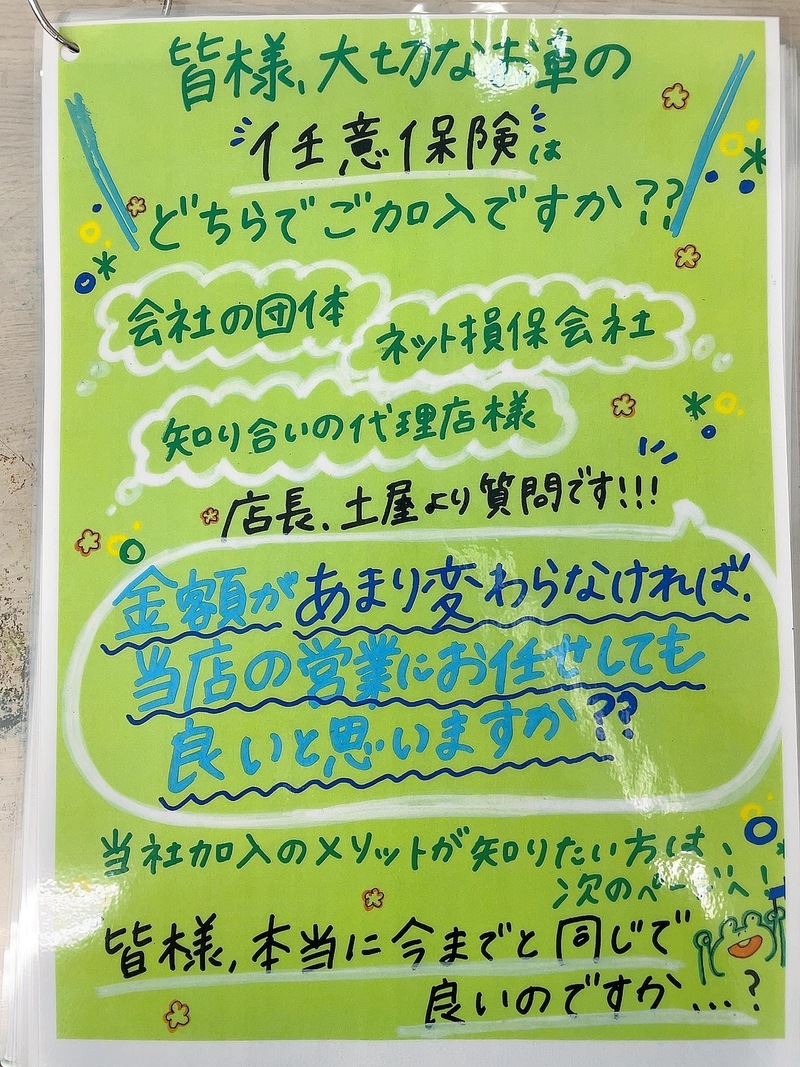 皆様、大切なお車の
任意保険は
どちらでご加入ですか??
会社の団体
ネット損保会社
知り合いの代理店様
店長、土屋より質問です!!!
金額があまり変わらなければ、
当店の営業にお任せしても
良いと思いますか??
当社加入のメリットが知りたい方は、
次のページへ!
皆様、本当に今までと同じで
良いのですか...?